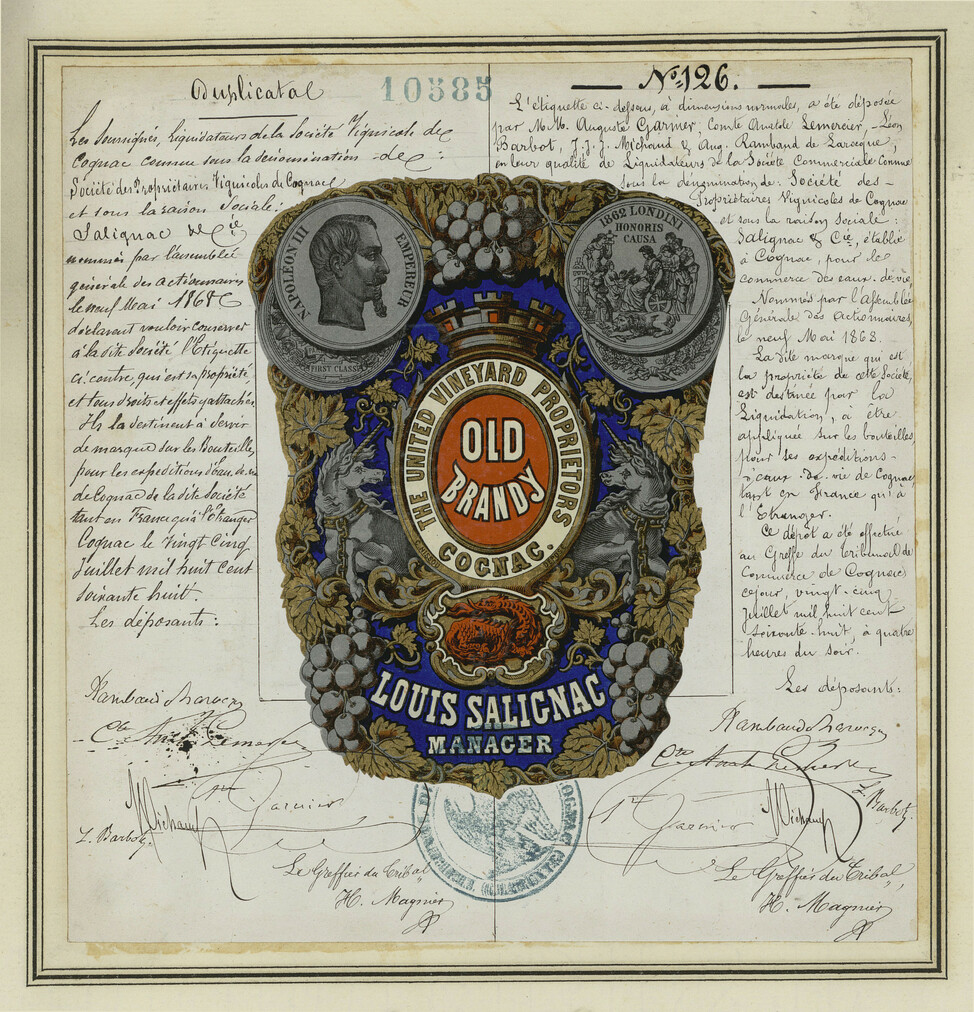 Duplicata
10585
Les Soussignés, Liquidateurs de la Société Vignicole de
Cognac connue sous la dénomination de :
Société des Propriétaires Vignicoles de Cognac
et sous la raison Sociale :
Salignac & Cie
nommés par l'assemblée
générale des actionnaires
le neuf Mai 1868
déclarent vouloir conserver
à la dite Société l'Etiquette
ci contre, qui est sa propriété,
et tous droits et effets y attachés
Ils la destinent à servir
de marque sur les Bouteilles
pour les expéditions d'eau de vie
de Cognac de la dite Société
tant en France qu'à l'Etranger
Cognac le Vingt Cinq
Juillet mil huit cent
soixante huit.
Les déposants :
Rambaud Larocque
Cte Anatole Lemercier
Ate Garnier
Michaud
L. Barbot
Le Greffier du Tribal
H. Magnier
No 126.
L'étiquette ci-dessous, à dimensions normales, a été déposée
par M.M. Auguste Garnier, Comte Anatole Lemercier, Léon
Barbot, J. J. J. Michaud & Aug. Rambaud de Larocque,
en leur qualité de Liquidateurs de la Société Commerciale Connue
sous la dénomination de : Société des
Propriétaires Vignicoles de Cognac
et sous la raison sociale :
Salignac & Cie, établie
à Cognac, pour le
commerce des eaux-de-vie
Nommés par l'Assemblée
Générale des Actionnaires,
le neuf Mai 1868.
La dite marque qui est
la propriété de cette Société
est destinée par la
Liquidation, à être
appliquée sur les bouteilles
pour ses expéditions
d'eaux-de-vie de Cognac
tant en France qu'à
l'Etranger.
Ce dépôt a été effectué
au Greffe du tribunal de
Commerce de Cognac
ce jour, vingt-cinq
Juillet mil huit cent
soixante-huit, à quatre
heures du soir.
Les déposants :
Rambaud Larocque
Cte Anatole Lemercier
L. Barbot
Ate Garnier
Michaud
Le Greffier du Tribal,
H. Magnier
NAPOLEON III EMPEREUR
FIRST CLASS
1862 LONDINI
HONORIS
CAUSA
THE UNITED VINEYARD PROPRIETORS
OLD
BRANDY
COGNAC.
LOUIS SALIGNAC
MANAGER